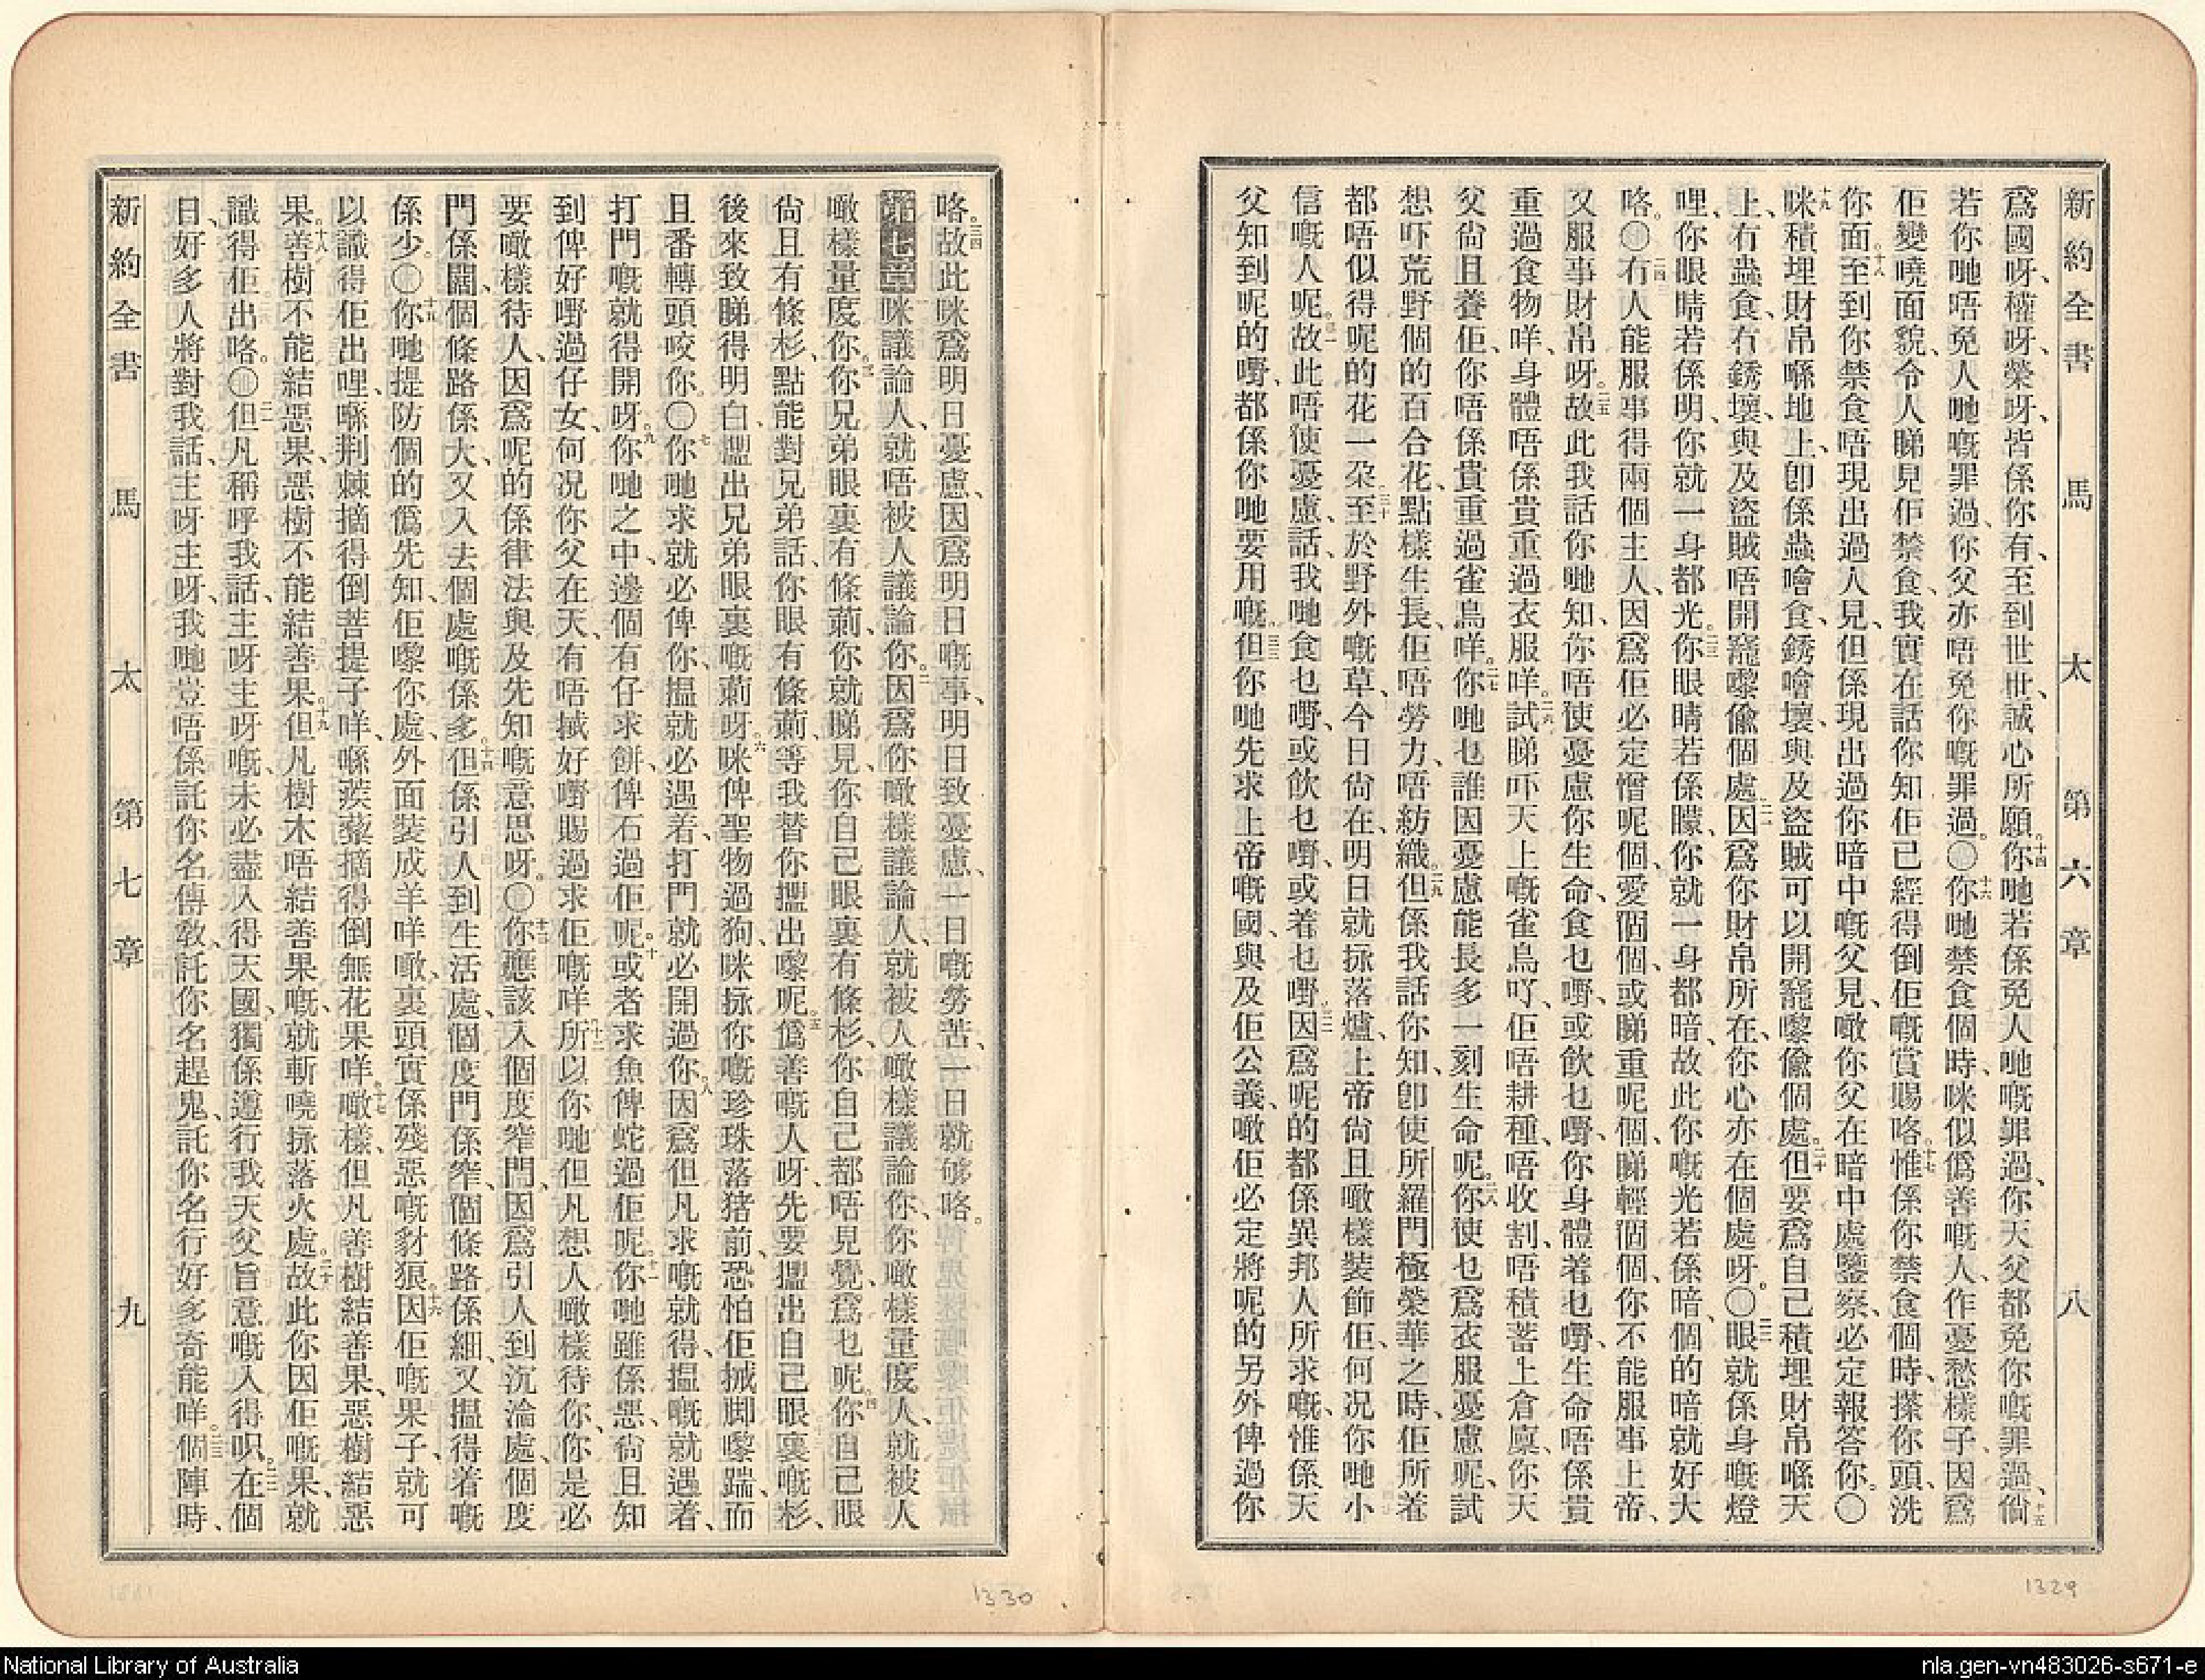 新約全書 馬 太 第六章 八
爲國呀、權呀、榮呀、皆係你有、至到世世、誠心所願。十四你哋若係免人哋嘅罪過、你天父都免你嘅罪過、十五倘
若你哋唔免人哋嘅罪過、你父亦唔免你嘅罪過。〇十六你哋禁食個時、咪似僞善嘅人、作憂愁樣子、因爲
佢變曉面貌、令人睇見佢禁食、我實在話你知、佢已經得倒佢嘅賞賜咯。十七惟係你禁食個時、搽你頭、洗
你面、十八至到你禁食唔現出過人見、但係現出過你暗中嘅父見、噉你父在暗中處鑒察、必定報答你。〇
十九咪積埋財帛喺地上、卽係蟲噲食、銹噲壞、與及盜賊可以開窿嚟偷個處。二十但要爲自己積埋財帛喺天
上、冇蟲食、冇銹壞、與及盜賊唔開窿嚟偷個處、二一因爲你財帛所在、你心亦在個處呀。〇二二眼就係身嘅燈
哩、你眼睛若係明、你就一身都光。二三你眼睛若係朦、你就一身都暗、故此你嘅光若係暗、個的暗就好大
咯。〇二四冇人能服事得兩個主人、因爲佢必定憎呢個、愛個個、或睇重呢個、睇輕個個、你不能服事上帝、
又服事財帛呀。二五故此我話你哋知、你唔使憂慮你生命、食乜嘢、或飲乜嘢、你身體着乜嘢、生命唔係貴
重過食物咩、身體唔係貴重過衣服咩。二六試睇吓天上嘅雀鳥吖、佢唔耕種、唔收割、唔積蓄上倉廪、你天
父尙且養佢、你唔係貴重過雀鳥咩。二七你哋乜誰因憂慮能長多一刻生命呢。二八你使乜爲衣服憂慮呢、試
想吓荒野個的百合花、點樣生長、佢唔勞力、唔紡織。二九但係我話你知、卽使所羅門極榮華之時、佢所着
都唔似得呢的花一朵、三十至於野外嘅草、今日尙在、明日就掁落爐、上帝尙且噉樣裝飾佢、何況你哋小
信嘅人呢。三一故此唔使憂慮、話、我哋食乜嘢、或飲乜嘢、或着乜嘢。三二因爲呢的都係異邦人所求嘅、惟係天
父知到呢的嘢、都係你哋要用嘅。三三但你哋先求上帝嘅國、與及佢公義、噉佢必定將呢的另外俾過你
咯。三四故此咪爲明日憂慮、因爲明日嘅事、明日致憂慮、一日嘅勞苦、一日就够咯。
第七章 咪議論人、就唔被人議論你。二因爲你噉樣議論人、就被人噉樣議論你、你噉樣量度人、就被人
噉樣量度你。三你兄弟眼裏有條䓶、你就睇見、你自己眼裏有條杉、你自己都唔見覺、爲乜呢。四你自己眼
尙且有條杉、點能對兄弟話、你眼有條䓶、等我替你搵出嚟呢。五僞善嘅人呀、先要搵出自己眼裏嘅杉、
後來致睇得明白、搵出兄弟眼裏嘅䓶呀。六咪俾聖物過狗、咪掁你嘅珍珠落猪前、恐怕佢拭脚嚟踹、而
且番轉頭咬你。〇七你哋求就必俾你、搵就必遇着、打門就必開過你。八因爲但凡求嘅就得、搵嘅就遇着、
打門嘅就得開呀。九你哋之中、邊個有仔求餅、俾石過佢呢。十或者求魚俾蛇過佢呢。十一你哋雖係惡、尙且知
到俾好嘢過仔女、何況你父在天、有唔㨢好嘢賜過求佢嘅咩。十二所以你哋但凡想人噉樣待你、你是必
要噉樣待人、因爲呢的係律法與及先知嘅意思呀。〇十三你應該入個度窄門、因爲引人到沉淪處、個度
門係闊、個條路係大、又入去個處嘅係多。十四但係引人到生活處、個度門係窄、個條路係細、又搵得着嘅
係少。〇十五你哋提防個的僞先知、佢嚟你處、外面裝成羊咩噉、裏頭實係殘惡嘅豺狼。十六因佢嘅果子、就可
以識得佢出哩、喺荆棘摘得倒菩提子咩、喺蒺藜摘得倒無花果咩。十七噉樣、但凡善樹結善果、惡樹結惡
果。十八善樹不能結惡果、惡樹不能結善果。十九但凡樹木唔結善果嘅、就斬曉掁落火處。二十故此你因佢嘅果、就
識得佢出咯。〇二一但凡稱呼我話、主呀主呀嘅、未必盡入得天國、獨係遵行我天父旨意嘅、入得呮。二二在個
日、好多人將對我話、主呀主呀、我哋豈唔係託你名傳敎、託你名趕鬼、託你名行好多奇能咩。二三個陣時、
新約全書 馬 太 第七章 九
1330
1329
National Library of Australia
nla.gen-vn483026-s671-e